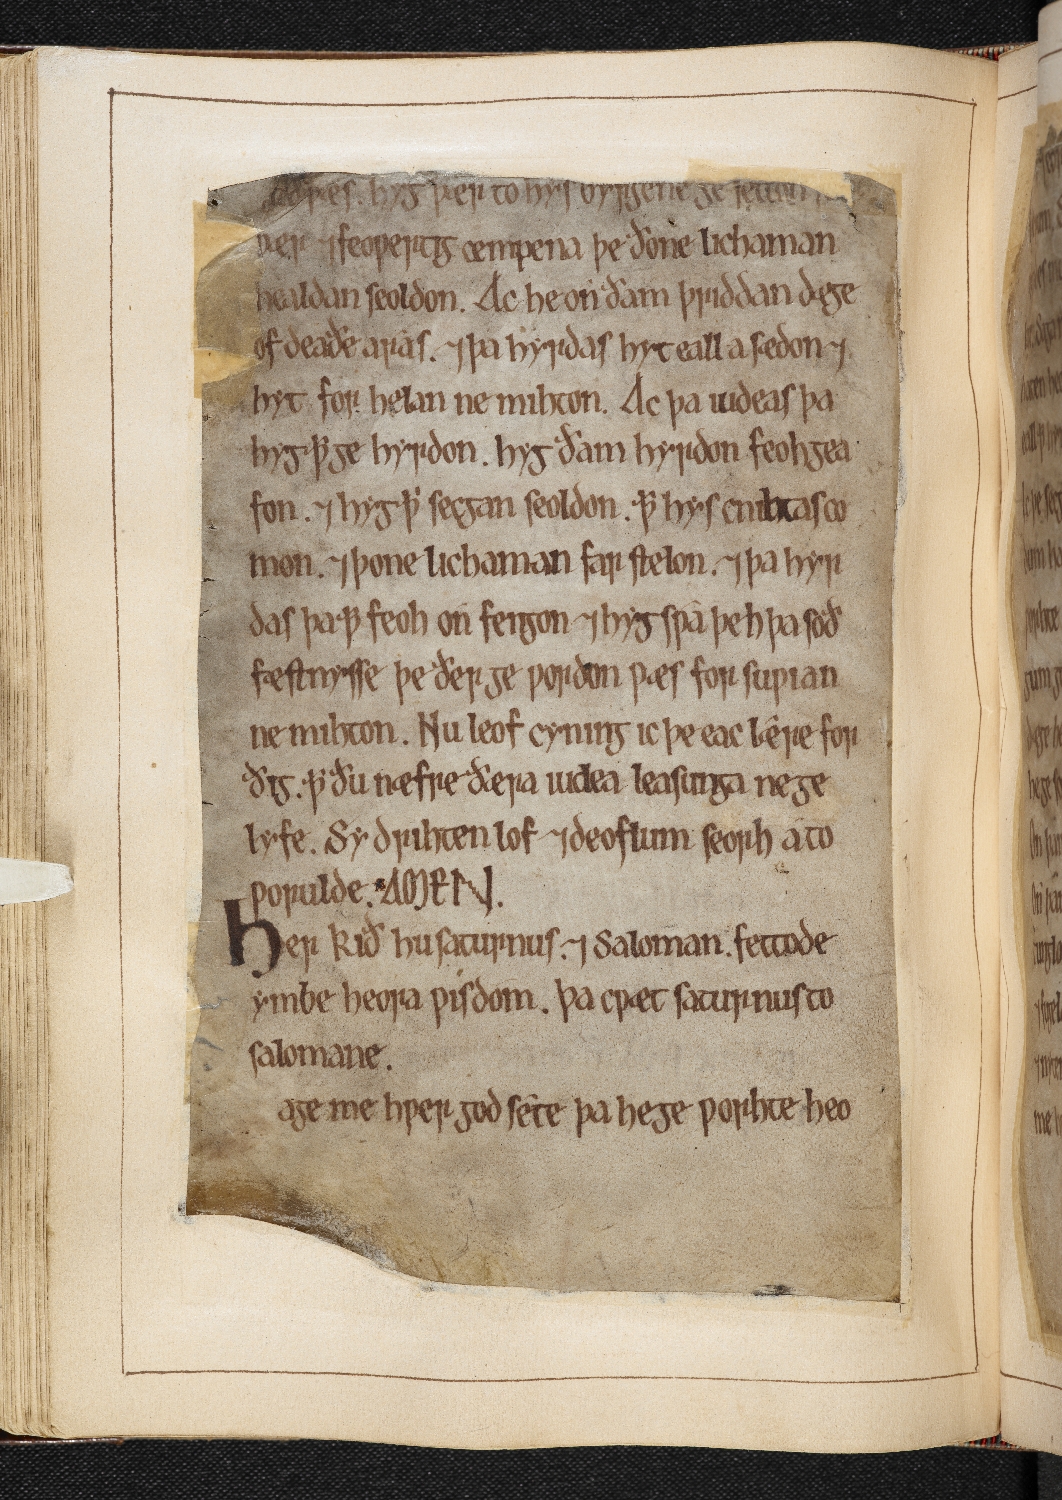 hyg þær to hys byrgene ge setton
þær ⁊ feoƿertig cempena þe ðone lichaman
healdan seoldon. Ac he on ðam þriddan dæge
of deaðe aras. ⁊ þa hyrdas hyt eall asædon ⁊
hyt for helan ne mihton. Ac þa iudeas þa
hyg ꝥ ge hyrdon. hyg ðam hyrdon feoh gea
fon. ⁊ hyg ꝥ secgan seoldon. ꝥ hys cnihtas co
mon. ⁊ þone lichaman far stelon. ⁊ þa hyr
das þa ꝥ feoh on fengon ⁊ hyg sƿa þeh þa soð
fæstnysse þe ðer ge ƿordon ƿæs for suƿian
ne mihton. Nu leof cyning ic þe eac lęre for
ðig. ꝥ ðu næfre ðæra iudea leasunga ne ge
lyfe. Sy drihten lof ⁊ deoflum seorh a to
ƿorulde. AMEN.
Her kið hu saturnus. ⁊ Saloman. fettode
ymbe heora ƿisdom. Þa cƿæt saturnus to
salomane.
age me hƿer god sete þa he ge ƿorhte heo